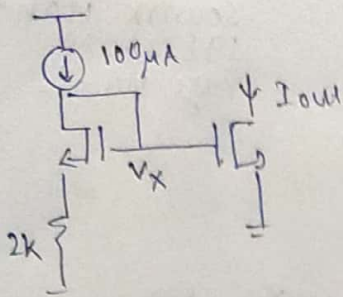 100μA
Iout
Vx
2k